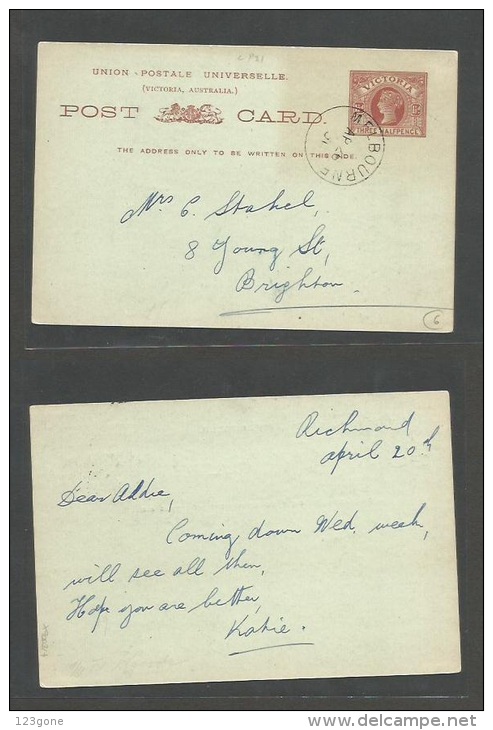 UNION POSTALE UNIVERSELLE.
(VICTORIA, AUSTRALIA.)
POST CARD.
THE ADDRESS ONLY TO BE WRITTEN ON THIS SIDE.
VICTORIA
THREE HALFPENCE
MELBOURNE
AP
Mrs C. Stahel,
8 Young St,
Brighton.
6
Richmond
April 20th
Dear Addie,
Coming down Wed. week,
will see all then,
Hope you are better,
Katie.
123gone
delcampe.net